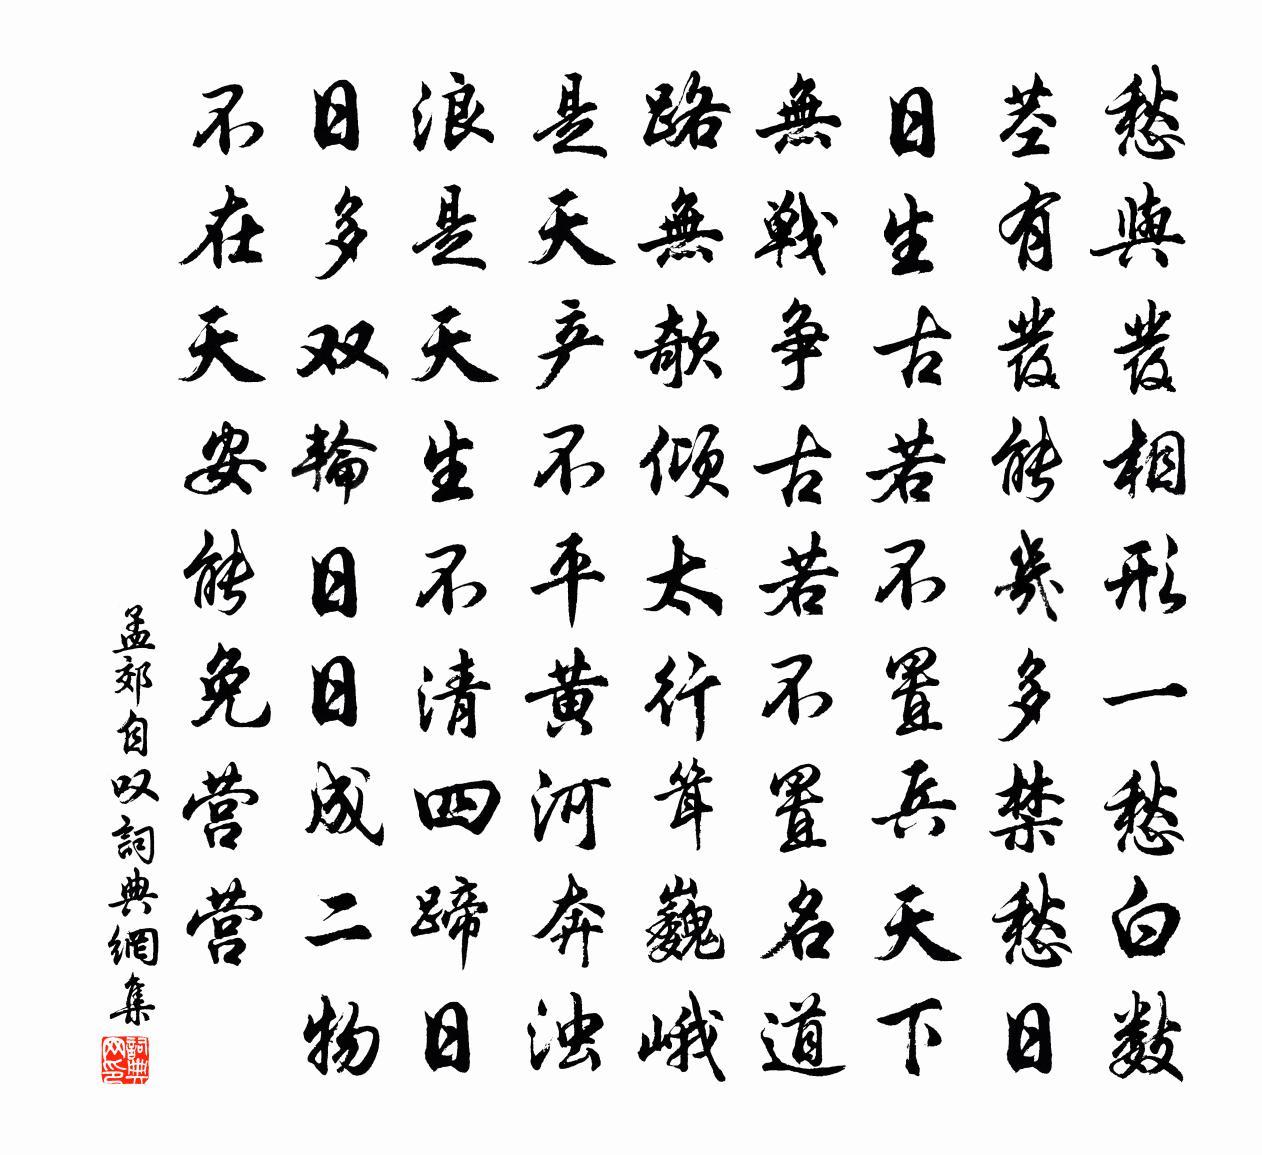 愁與發相形一愁白数
茎有發能幾多禁愁日
日生古若不置兵天下
無戦争古若不置名道
路無欹倾太行耸巍峨
是天产不平黄河奔浊
浪是天生不清四蹄日
日多双輪日日成二物
不在天安能免营营
孟郊自叹詞典網集
詞典网印